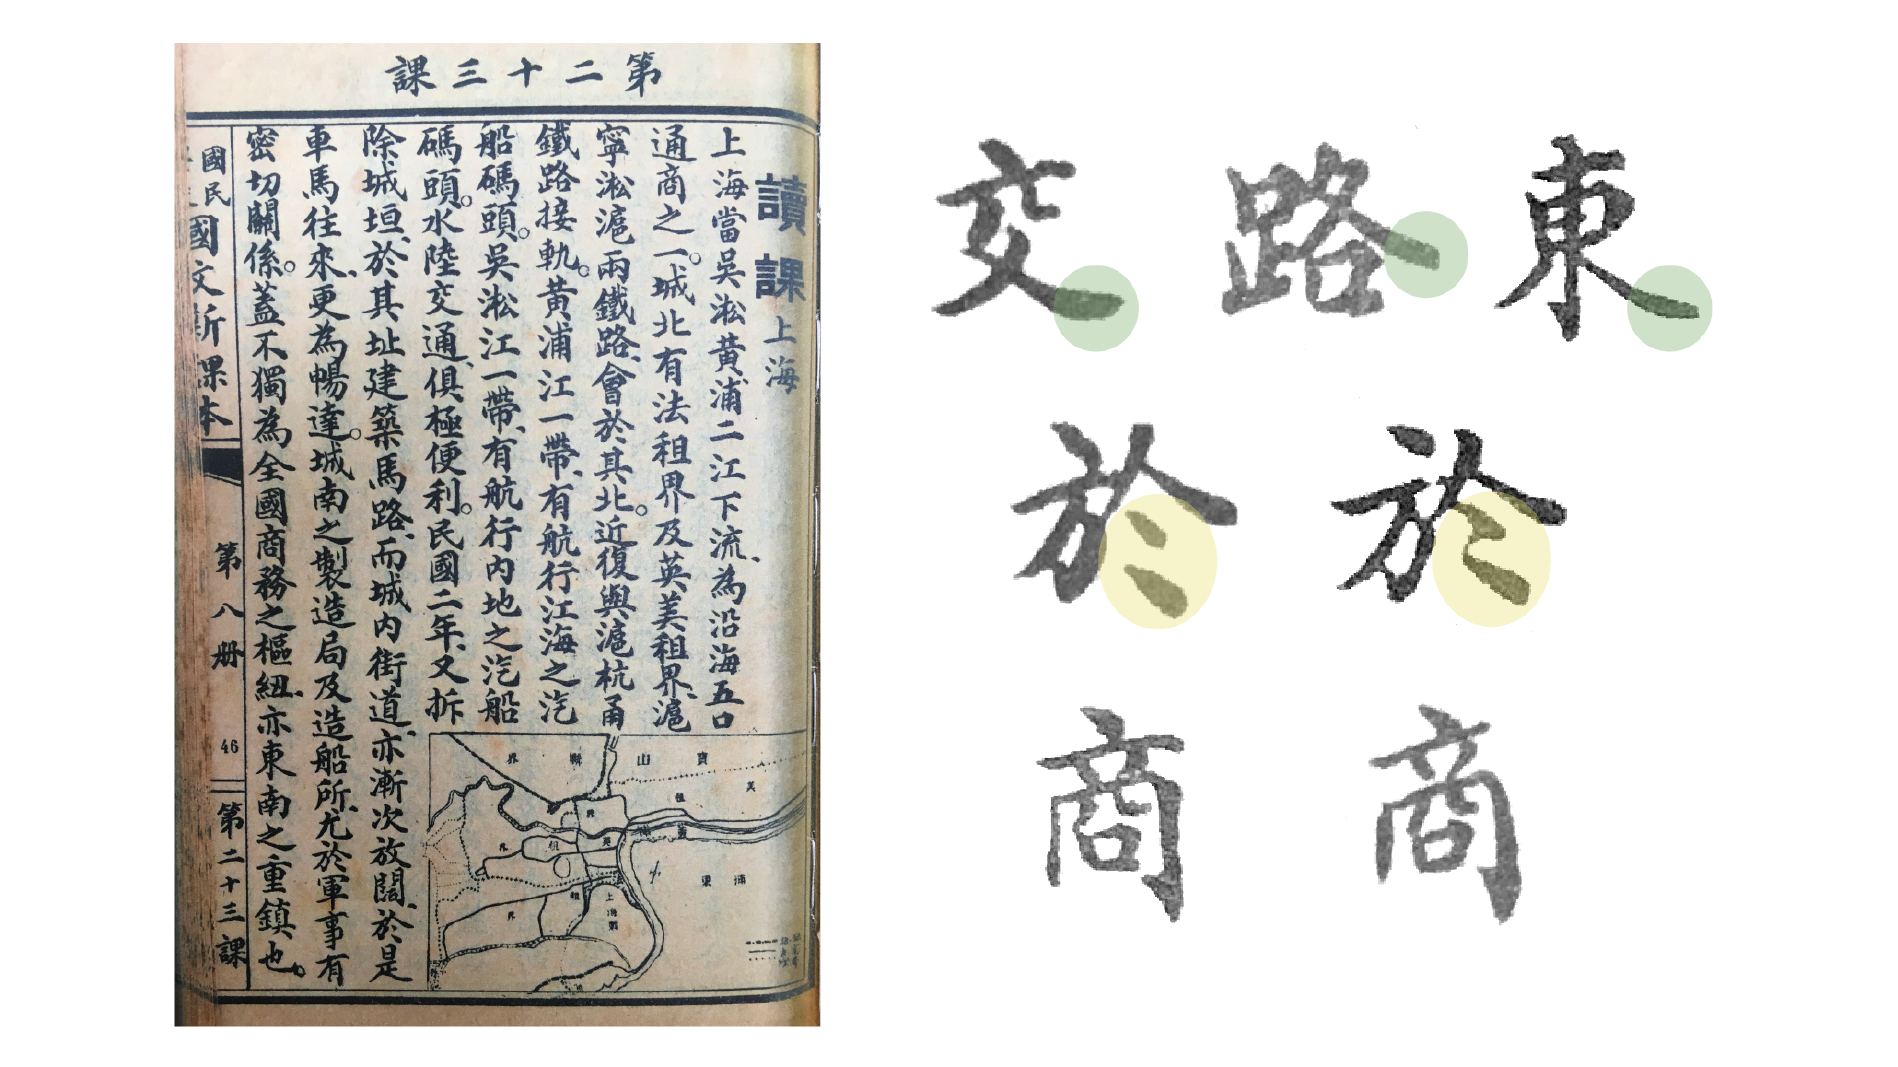 第二十三課
讀課 上海
上海當吳淞黃浦二江下流、為沿海五口
通商之一。城北有法租界及英美租界、滬
寧淞滬兩鐵路、會於其北。近復與滬杭甬
鐵路接軌。黃浦江一帶、有航行江海之汽
船碼頭。吳淞江一帶、有航行內地之汽船
碼頭。水陸交通、俱極便利。民國二年、又拆
除城垣、於其址建築馬路、而城內街道、亦漸次放闊、於是
車馬往來、更為暢達。城南之製造局及造船所、尤於軍事有
密切關係。蓋不獨為全國商務之樞紐、亦東南之重鎮也。
寶山縣界
美租界
浦東
國民
國文新課本
第八册
46
第二十三課
交 路 東
於 於
商 商